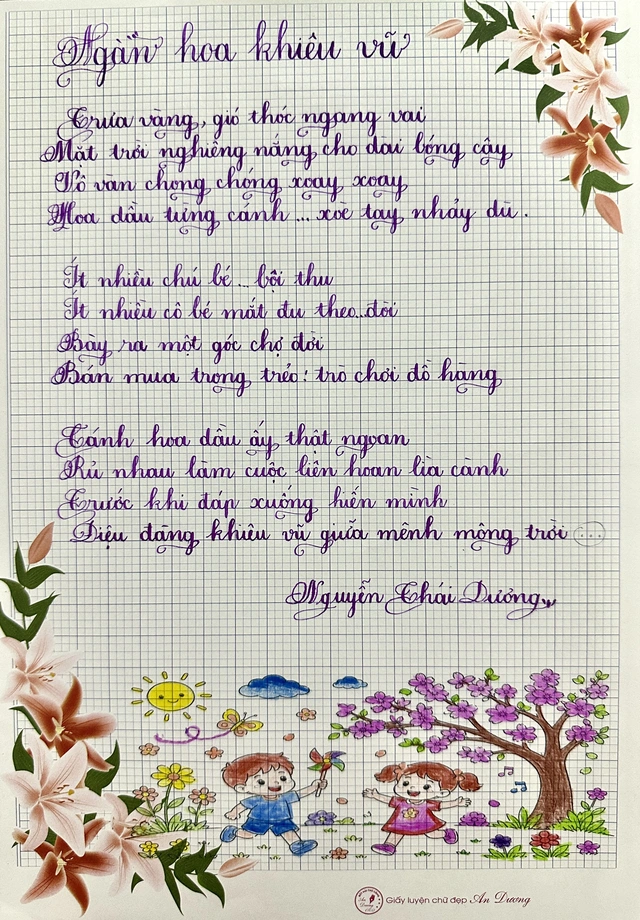 Ngàn hoa khiêu vũ
Trưa vàng, gió thốc ngang vai
Mặt trời nghiêng nắng cho dài bóng cây
Vô vàn chong chóng xoay xoay
Hoa dầu từng cánh... xoè tay nhảy dù.
Ít nhiều chú bé... bội thu
Ít nhiều cô bé mắt đu theo...đòi
Bày ra một góc chợ đồi
Bán mua trong trẻo! trò chơi đồ hàng
Cánh hoa dầu ấy thật ngoan
Rủ nhau làm cuộc liên hoan lìa cành
Trước khi đáp xuống hiến mình
Điệu đàng khiêu vũ giữa mênh mông trời ...
Nguyễn Thái Dương
Giấy luyện chữ đẹp An Dương